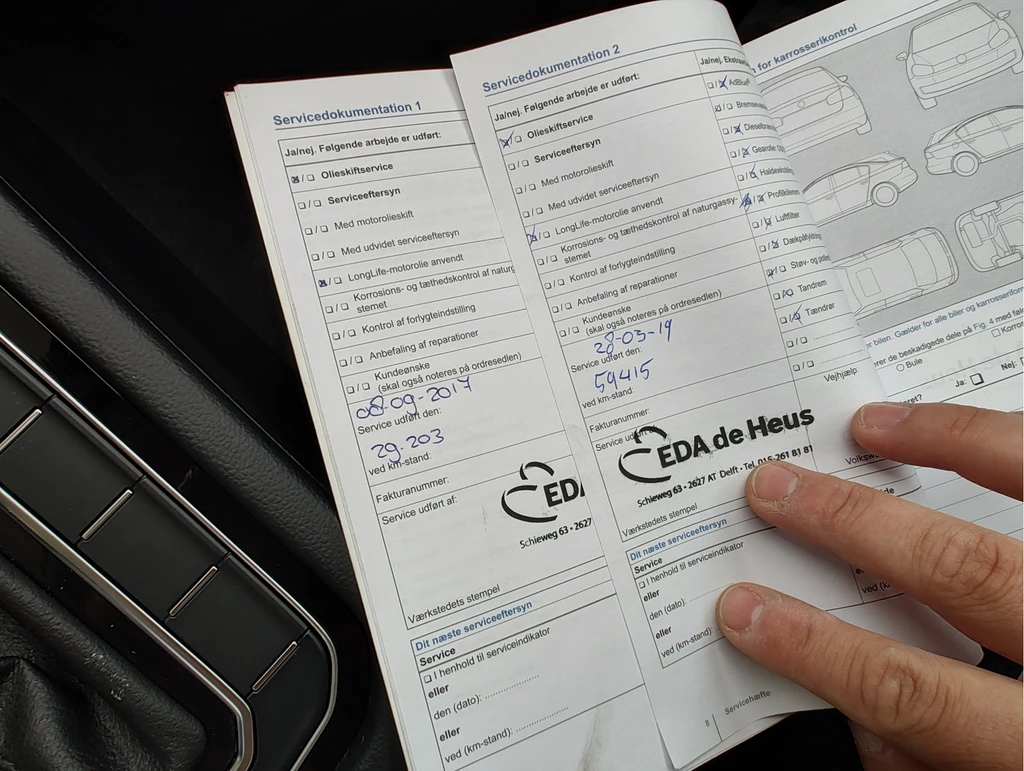 Servicedokumentation 1
Ja/nej. Følgende arbejde er udført:
Olieskiftservice
Serviceeftersyn
Med motorolieskift
Med udvidet serviceeftersyn
LongLife-motorolie anvendt
Korrosions- og tæthedskontrol af naturg
stemet
Kontrol af forlygteindstilling
Anbefaling af reparationer
Kundeønske
(skal også noteres på ordresedlen)
08-09-2017
Service udført den:
29.203
ved km-stand:
Fakturanummer:
Service udført af:
EDA
Schieweg 63 • 2627
Værkstedets stempel
Dit næste serviceeftersyn
Service
I henhold til serviceindikator
eller
den (dato):
eller
ved (km-stand):
Servicedokumentation 2
Ja/nej. Følgende arbejde er udført:
Olieskiftservice
Serviceeftersyn
Med motorolieskift
Med udvidet serviceeftersyn
LongLife-motorolie anvendt
Korrosions- og tæthedskontrol af naturgassy-
stemet
Kontrol af forlygteindstilling
Anbefaling af reparationer
Kundeønske
(skal også noteres på ordresedlen)
28-03-19
Service udført den:
59415
ved km-stand:
Fakturanummer:
Service
EDA de Heus
Schieweg 63 • 2627 AT Delft • Tel. 015-261 81 81
Værkstedets stempel
Dit næste serviceeftersyn
Service
I henhold til serviceindikator
eller
den (dato):
eller
ved (km-stand):
8 Servicehæfte
Ja/nej.
AdBlue®
Luftfilter
Dækpåfyldning
Støv- og
Tandrem
Tændrør
Vejhjælp
ved (k
for karrosserikontrol
bilen. Gælder for alle biler og karrosserifor
er de beskadigede dele på Fig. 4 med
Bule
Ja:
Nej: